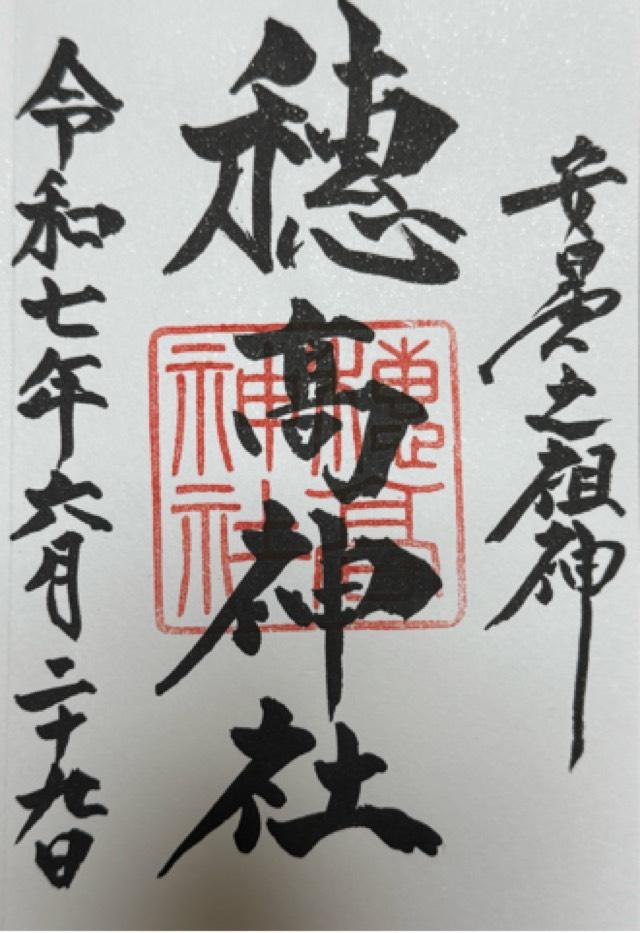 安曇之祖神
穂髙神社
穂高神社
令和七年六月二十九日